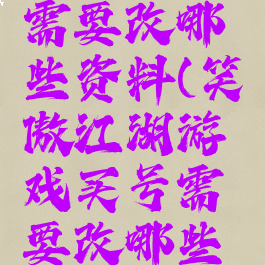 需要改哪
些资料(笑
傲江湖游
戏买号需
要改哪些